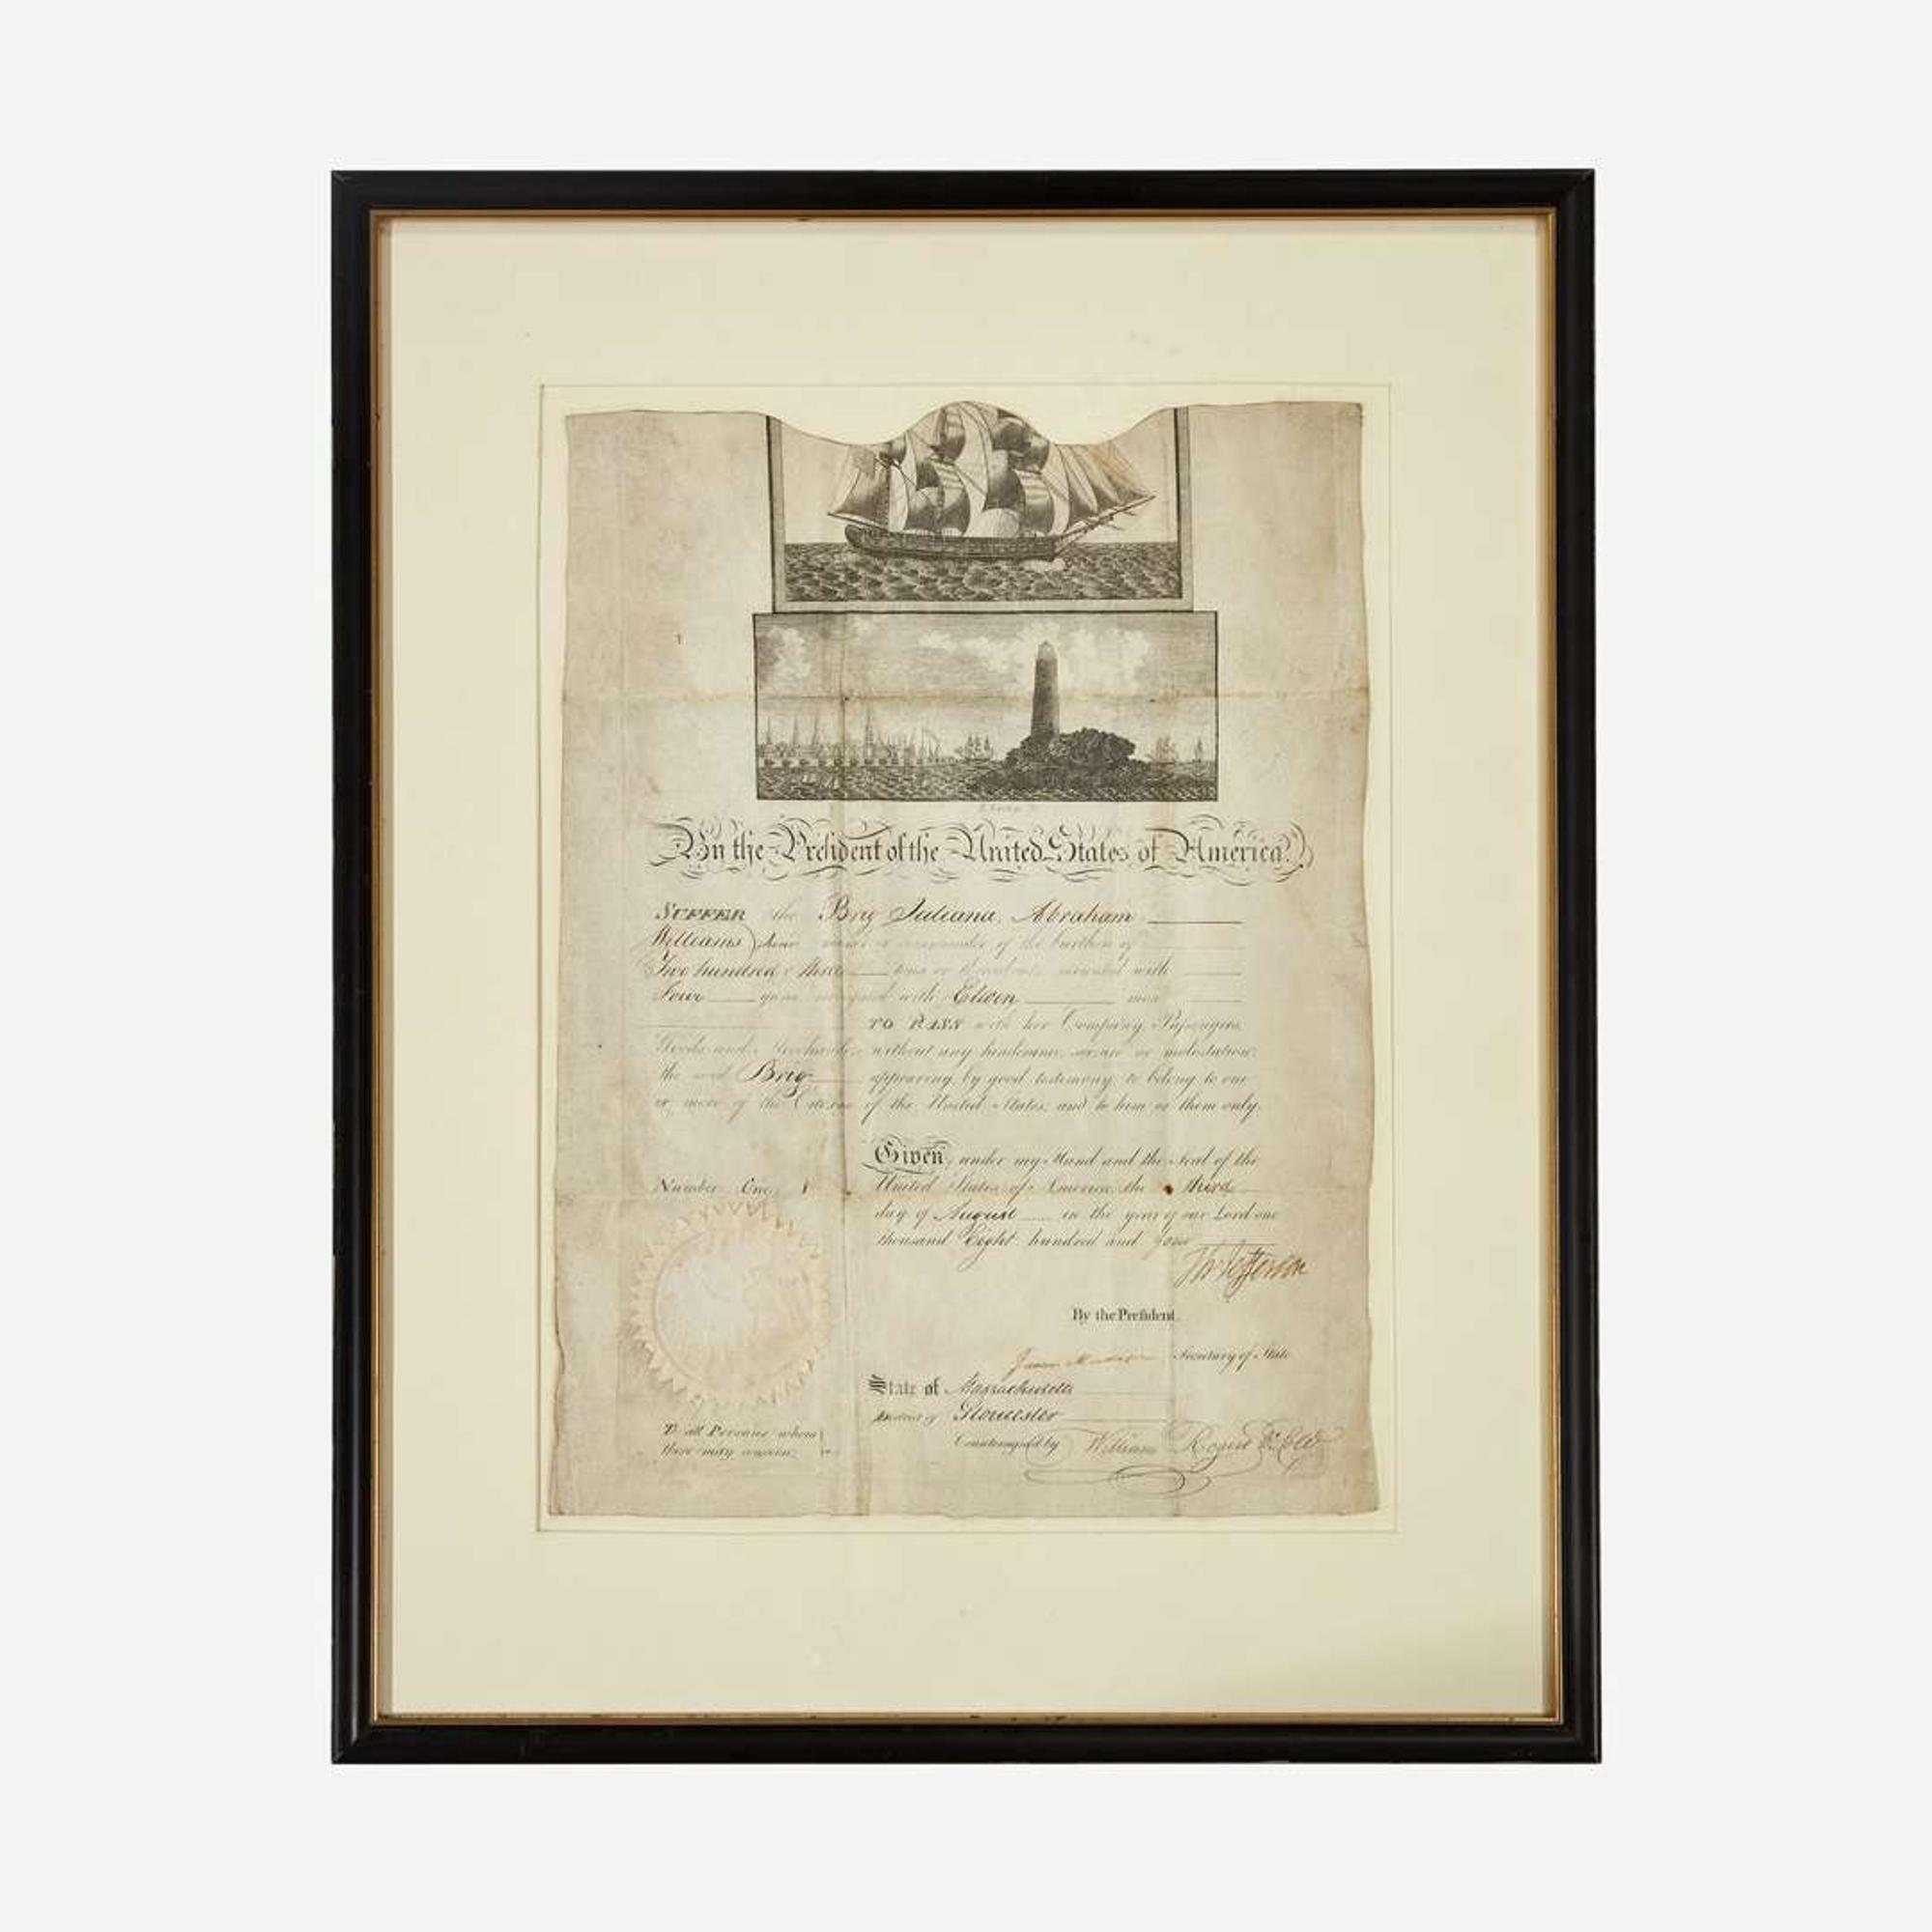 By the President of the United States of America.
SUFFER the Brig Juliana, Abraham
Williams master or commander of the burthen of
Two hundred & three tons or thereabouts mounted with
Four guns navigated with Eleven men
TO PASS with her Company, Passengers,
Goods and Merchandize without any hinderance, seizure or molestation
the said Brig appearing by good testimony to belong to one
or more of the Citizens of the United States, and to him or them only.
Given under my Hand and the Seal of the
United States of America the third
day of August in the year of our Lord one
thousand Eight hundred and four
Number One
Th Jefferson
By the President.
James Madison Secretary of State.
State of Massachusetts
District of Gloucester
Countersigned by William
To all Persons whom
these may concern.